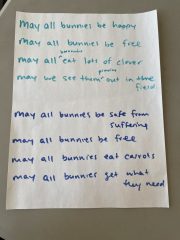 may all bunnies be happy
may all bunnies be free
may all bunnies eat lots of clover
may we see them prancing out in the
field
may all bunnies be safe from
suffering
may all bunnies be free
may all bunnies eat carrots
may all bunnies get what
they need